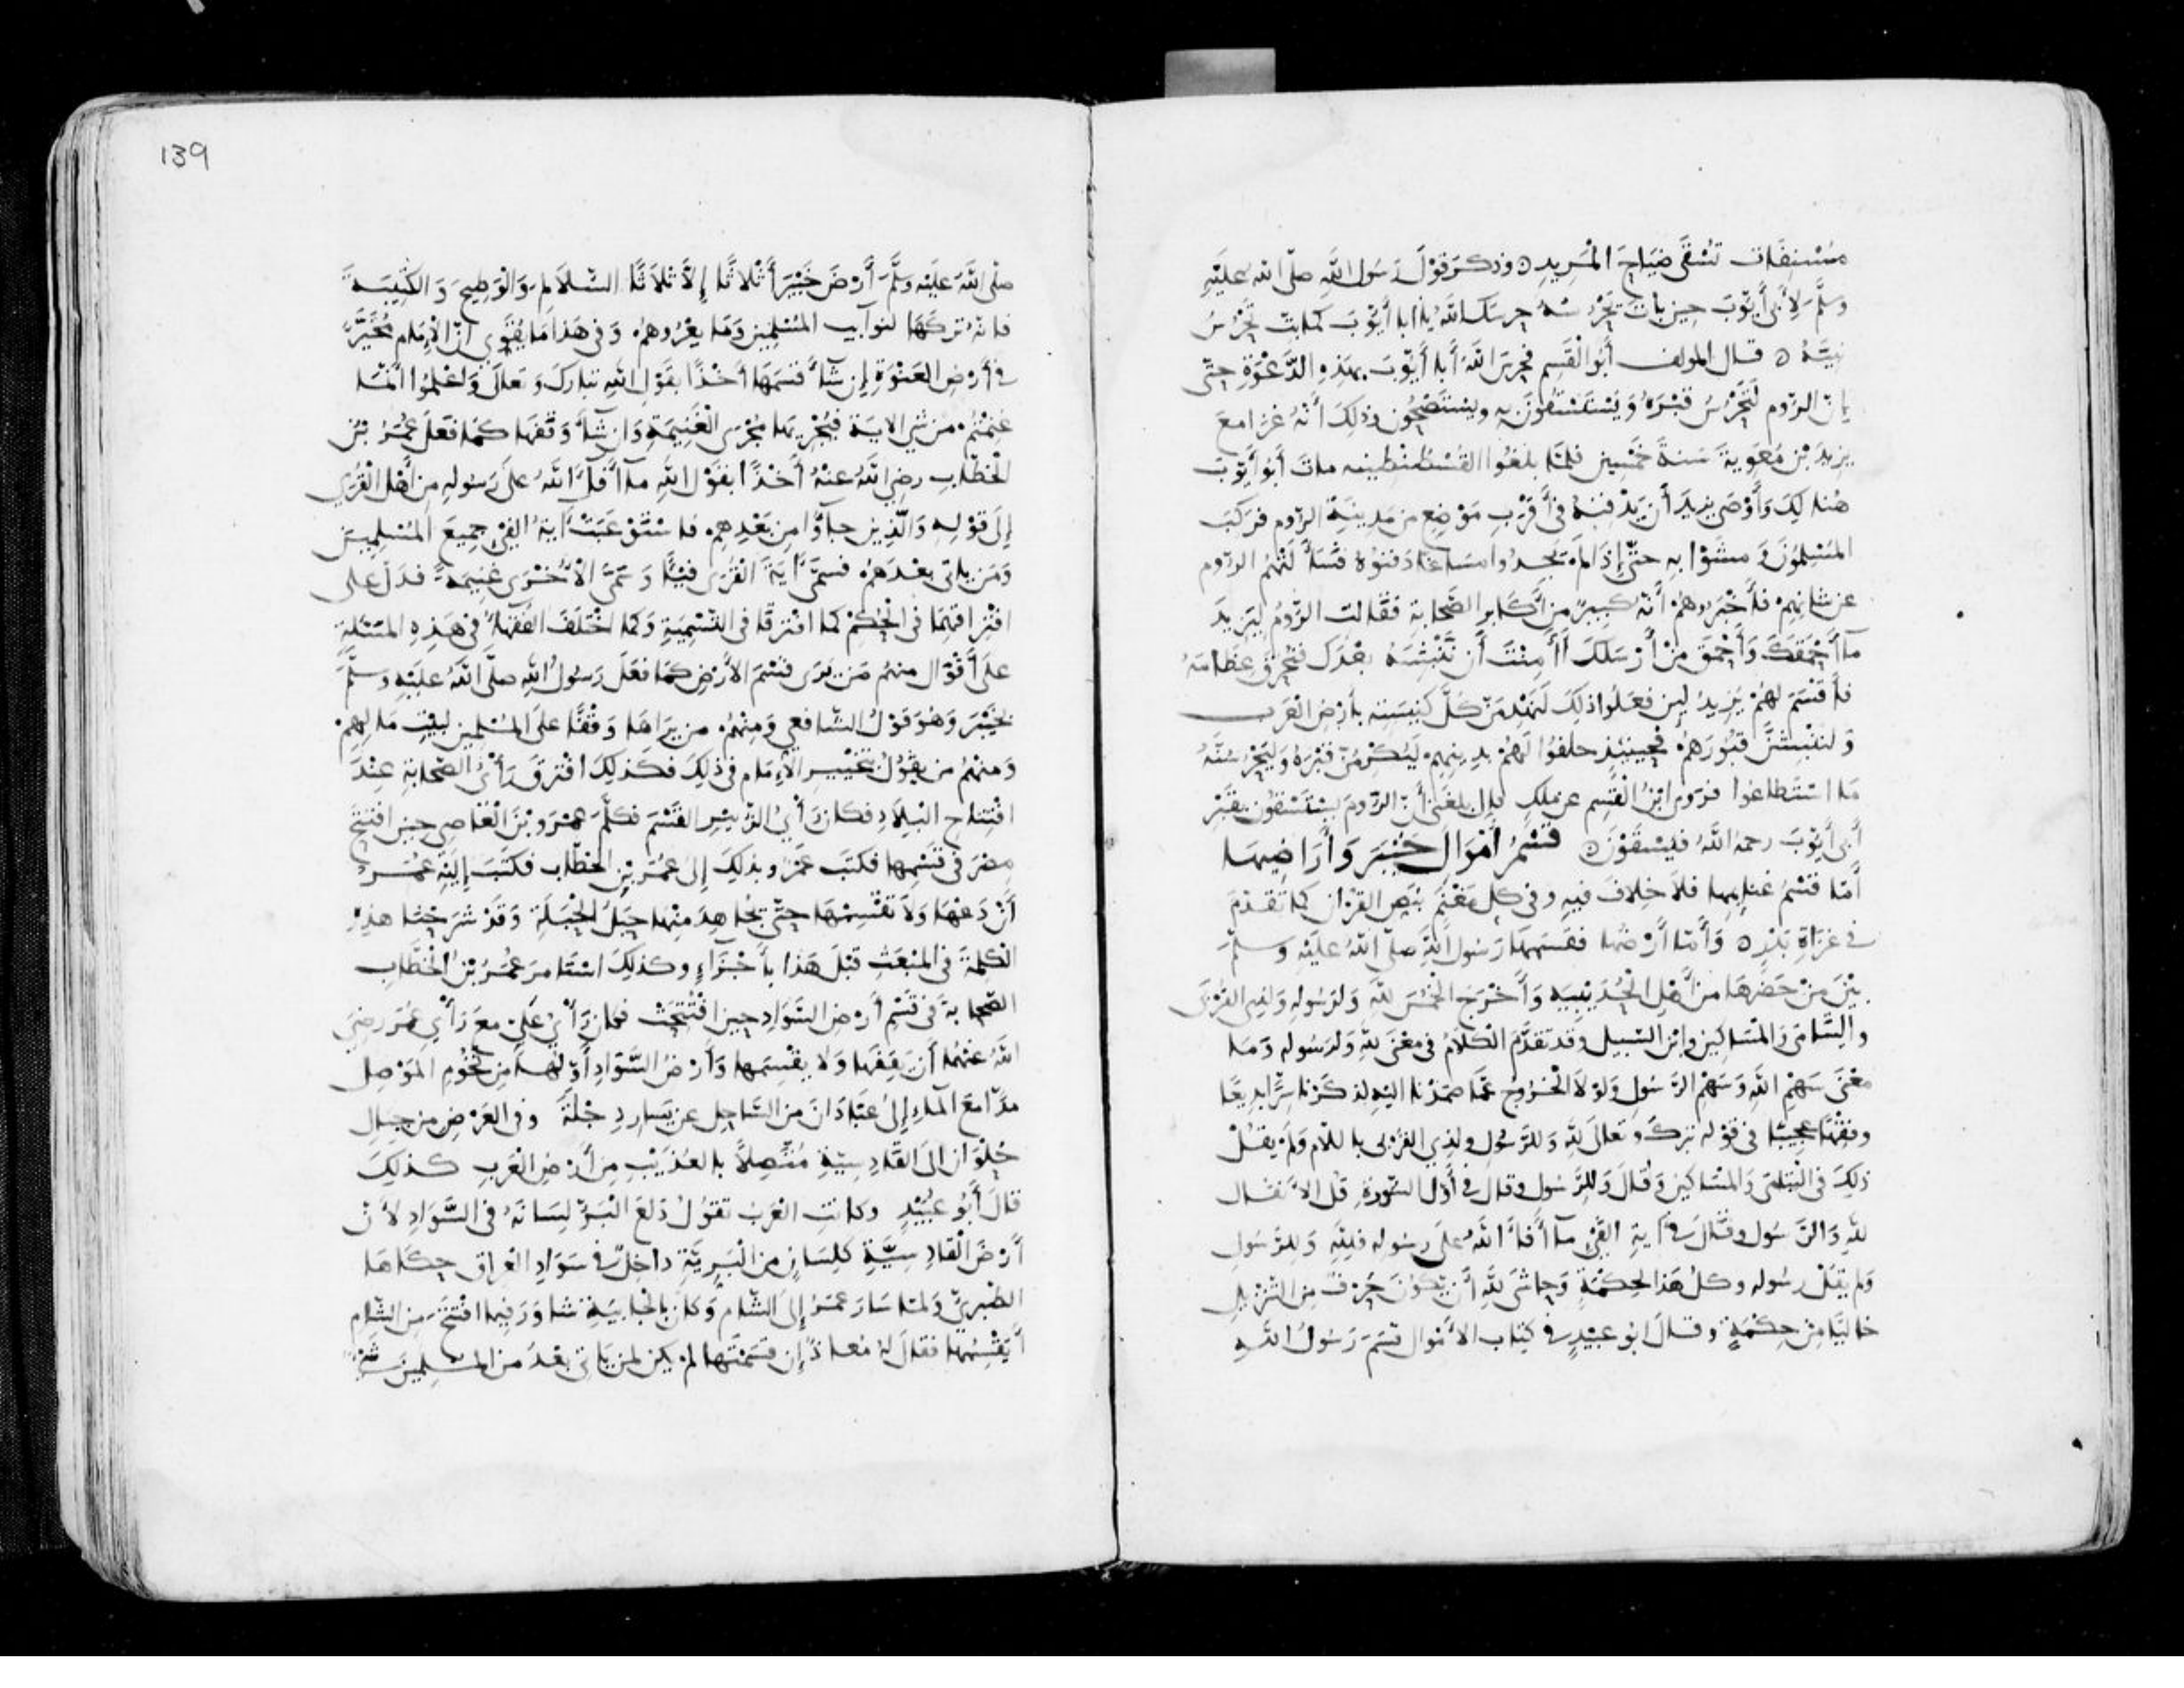 مُسْنِفَات تُسْقَى ضَيَاحَ المَرِيدِ ٥ وذكر قَوْلَ رَسُول اللَّهِ صلّى الله عليْهِ
وسلَّم لِأَبي أيّوبَ حِينَ بَاتَ يَحْرُسُهُ حرسك اللّهُ يَا أبا أيّوبَ كما بتّ تَحْرُسُ
نبيّهُ ٥ قال المولف أَبُو القَسِم فحرسَ اللّهُ أبا أيّوبَ بهَذِهِ الدَّعْوَةِ حتّى
إنّ الرّوم لَتَحْرُسُ قَبْرَهُ وَيَسْتَسْقُونَ به ويستَصْحُون وذلِكَ أنّهُ غَزَا مع
يزيدَ بْنِ مُعَوِيةَ سَنةَ خمْسِين فلمّا بلغُوا القُسْطَنطِينيه ماتَ أبُو أيّوبَ
هُنالِكَ وَأَوْصَى يَزِيدَ أن يَدْفنهُ في أَقْرَبِ مَوْضِعٍ من مَدِينَةِ الرّوم فرَكِبَ
المُسْلِمُونَ وَمشَوْا بهِ حتّى إذَا لم يَجدُوا مسَاغًا دَفنُوهُ فسَأَلَتْهُمُ الروم
عن شانِهِمْ فأخْبَرُوهُمْ أنّهُ كبِيرٌ من أكَابِرِ الصّحابة فقالت الرّومُ ليَزيدَ
مآ أحْمَقَكَ وَأَحْمَقَ مَنْ أَرْسَلكَ أَأَمِنْتَ أن نَنْبِشَهُ بعْدَك فنُحْرِقَ عِظَامَهُ
فأقْسَمَ لهُمْ يَزِيدُ لين فعَلُوا ذلِكَ ليَهْدِمَنّ كلّ كَنِيسَةٍ بأرْضِ العَرَب
وَلينبُشَنَّ قبُورَهُمْ فحِينَئذٍ حلفُوا لهُمْ بدِينِهِمْ ليُكْرِمُنّ قَبْرَهُ وَلَيَحْرُسُنّهُ
مَا اسْتَطاعُوا فرَوى ابْنُ القَسِم عن مَلكٍ قال بلغَنِي أنّ الرّومَ يسْتَسْقُونَ بقَبْرِ
أبِي أيّوبَ رحمهُ اللّهُ فيُسْقَوْنَ ٥ قَسْمُ أَمْوَالِ خَيْبَرَ وَأَرَاضِيهَا
أمّا قَسْمُ غنايمِها فلاَ خِلافَ فيهِ وفي كل مغْنَمٍ بنَصِ القرْآن كما تَقدّمَ
في غزَاةِ بَدْرٍ ٥ وَأَمّا أَرْضُها فقسَمهَا رَسُول اللّهِ صلّى اللّهُ عليْهِ وسلّم
بَيْنَ مَنْ حَضَرَهَا من أهْل الحُدَيْبِيَه وَأَخْرَجَ الخُمْسَ للّهِ وَلرَسُولِهِ وَلِذِي القُرْبَى
واليَتَامَى وَالمَسَاكِينِ وابْنِ السّبِيل وقد تقدّمَ الكلامُ في معْنَى للّهِ وَلرَسُولِه وَمَا
مَعْنَى سَهْمِ اللّهِ وَسَهْمِ الرّسُولِ وَلَوْ لاَ الخُرُوجُ عَمّا صَمَدْنا اليهِ لذكَرْنا سِرًّا بدِيعًا
وفِقْهًا عجِيبًا في قَوْلِه تبَركَ وتَعَالى للّهِ وَللرّسُولِ ولذي القُرْبى باللام وَلمْ يقُلْ
ذلِكَ في اليَتامَى وَالمسَاكِين وَقَالَ وَللرّسُول وقال في أَوّلِ السُّورَةِ قل الأنفَال
للّهِ وَالرّسُولِ وقَالَ في آيةِ الفَيْءِ مآ أَفَاءَ اللّهُ على رسُولِهِ فلِلّهِ وَلِلرَّسُولِ
وَلم يَقُلْ رسُوله وكلُّ هَذا لِحِكْمَةٍ وَحاشَى للّهِ أنْ يَكُونَ حَرْفٌ مِنَ التّنْزِيل
خاليًا مِنْ حِكْمَةٍ وقالَ ابُو عبَيْدٍ في كِتاب الأَمْوَال قسَمَ رَسُولُ اللّهِ
139
صلى اللّهُ عَلَيْهِ وسَلَّمَ أَرْضَ خَيْبَرَ أَثْلاثًا إِلاَّ ثلاَثًا السّلاَلِمَ وَالْوَطِيحَ وَالكتِيبَةَ
فانّهُ تركَهَا لنوآيب المُسْلِمِين وَمَا يعْرُوهُمْ وَفي هَذا مَا يُقَوِّي انّ الإمَام مُخَيَّرٌ
في أَرْضِ العَنْوَةِ إن شَآءَ قسَمَهَا أخْذًا بقَوْلِ اللّهِ تبَاركَ وَتعالى وَاعْلمُوا انّما
غنِمْتُمْ مِن شَيْءٍ الايَةَ فيُجْرِيهَا مُجْرَى الغَنِيمَةِ وَان شَآءَ وَقَفَهَا كمَا فعَلَ عُمَرُ بْنُ
الخَطّابِ رضِي اللّهُ عَنْهُ أخْذًا بقَوْل اللّهِ مآ أفآءَ اللّهُ علَى رَسُولِهِ مِن أهْلِ القُرَى
إلى قوْلِهِ وَالّذِينَ جآؤُا مِن بَعْدِهِمْ فاسْتَوْعَبَتْ آيَةُ الفَيْءِ جمِيعَ المُسْلِمِينَ
وَمَن ياتي بعْدَهُمْ فسَمَّى آيَةَ القُرَى فيْئًا وَسَمَّى الأُخْرَى غَنِيمَةً فدَلّ على
افْتِرَاقِهِمَا في الحُكْمِ كما افْترَقَا في التّسْمِيَةِ وَكما اخْتَلَفَ الفُقَهَآءُ في هَذِهِ المَسْئَلَةِ
علَى أَقْوَالٍ منهم مَن يَرَى قَسْمَ الأَرْضِ كمَا فعَلَ رَسُولُ اللّهِ صلّى اللّهُ عليْهِ وسلّمَ
بخَيْبَرَ وَهُوَ قوْلُ الشّافعِي وَمِنْهُمْ من يرَاهَا وَقْفًا علَى المُسْلِمِين لبيْتِ مَالِهِمْ
وَمنهُمْ من يقُولُ بتَخْيِيرِ الإِمَام في ذلِكَ فكَذلِكَ افْترَقَ رَأْيُ الصّحَابَةِ عِنْدَ
افْتِتاحِ البِلاَدِ فكانَ رَأْيُ الزّبيْرِ القَسْمَ فكَلَّمَ عَمْرَو بْنَ العَاصِي حِينَ افْتَتَحَ
مِصْرَ في قَسْمِها فكتَبَ عَمْرٌو بذلِكَ إلى عُمَرَ بْنِ الخطّاب فكَتَبَ إليْهِ عُمَرُ
أَنْ دَعْهَا وَلاَ تَقْسِمْهَا حتّى يجَاهِدَ مِنْهَا حَبَلُ الحَبَلَةِ وَقَدْ شَرَحْنا هذِهِ
الكلِمَةَ في المَبْعَثِ قبْلَ هَذا بأَجْزَآءٍ وكذلِكَ اسْتَامَرَ عُمَرُ بْنُ الخَطَّابِ
الصّحَابَةَ في قَسْمِ أَرْضِ السَّوَادِ حِينَ افْتُتِحَتْ فكان رَأْيُ عَلِيٍّ معَ رَأْيِ عُمَرَ رضِيَ
اللّهُ عنْهُمَا أَن يَقِفَهَا وَلا يقْسِمَها وَأَرْضُ السَّوَادِ أوّلُهَا مِن تُخُومِ المَوْصِلِ
مدًّا معَ المآءِ إلى عَبّادَانَ مِن السَّاحِلِ عن يَسَارِ دِجْلَةَ وفي العَرْضِ مِن جِبَالِ
حُلْوَان الى القَادِسِيّةِ مُتّصِلاً بالعُذَيْبِ مِن أَرْضِ العَرَب كذلِكَ
قالَ أبُو عُبَيْدٍ وكانتِ العَرَبُ تقُولُ دَلَعَ البَرُّ لِسَانَهُ في السَّوَادِ لأنّ
أَرْضَ القَادِسِيّةِ كلِسَانٍ مِنَ البَرِيّةِ داخِلٌ في سَوَادِ العِراق حكَاهَا
الطّبرِيُّ وَلمّا سَارَ عمَرُ إلى الشّام وَكانَ بالجابِيَةِ شاوَرَ فِيما افْتَتَحَ مِنَ الشّام
أَيَقْسِمُهَا فقالَ لهُ مُعاذٌ إن قسَمْتَهَا لمْ يكن لمن ياتي بعْدُ مِن المُسْلِمِينَ شَيْءٌ